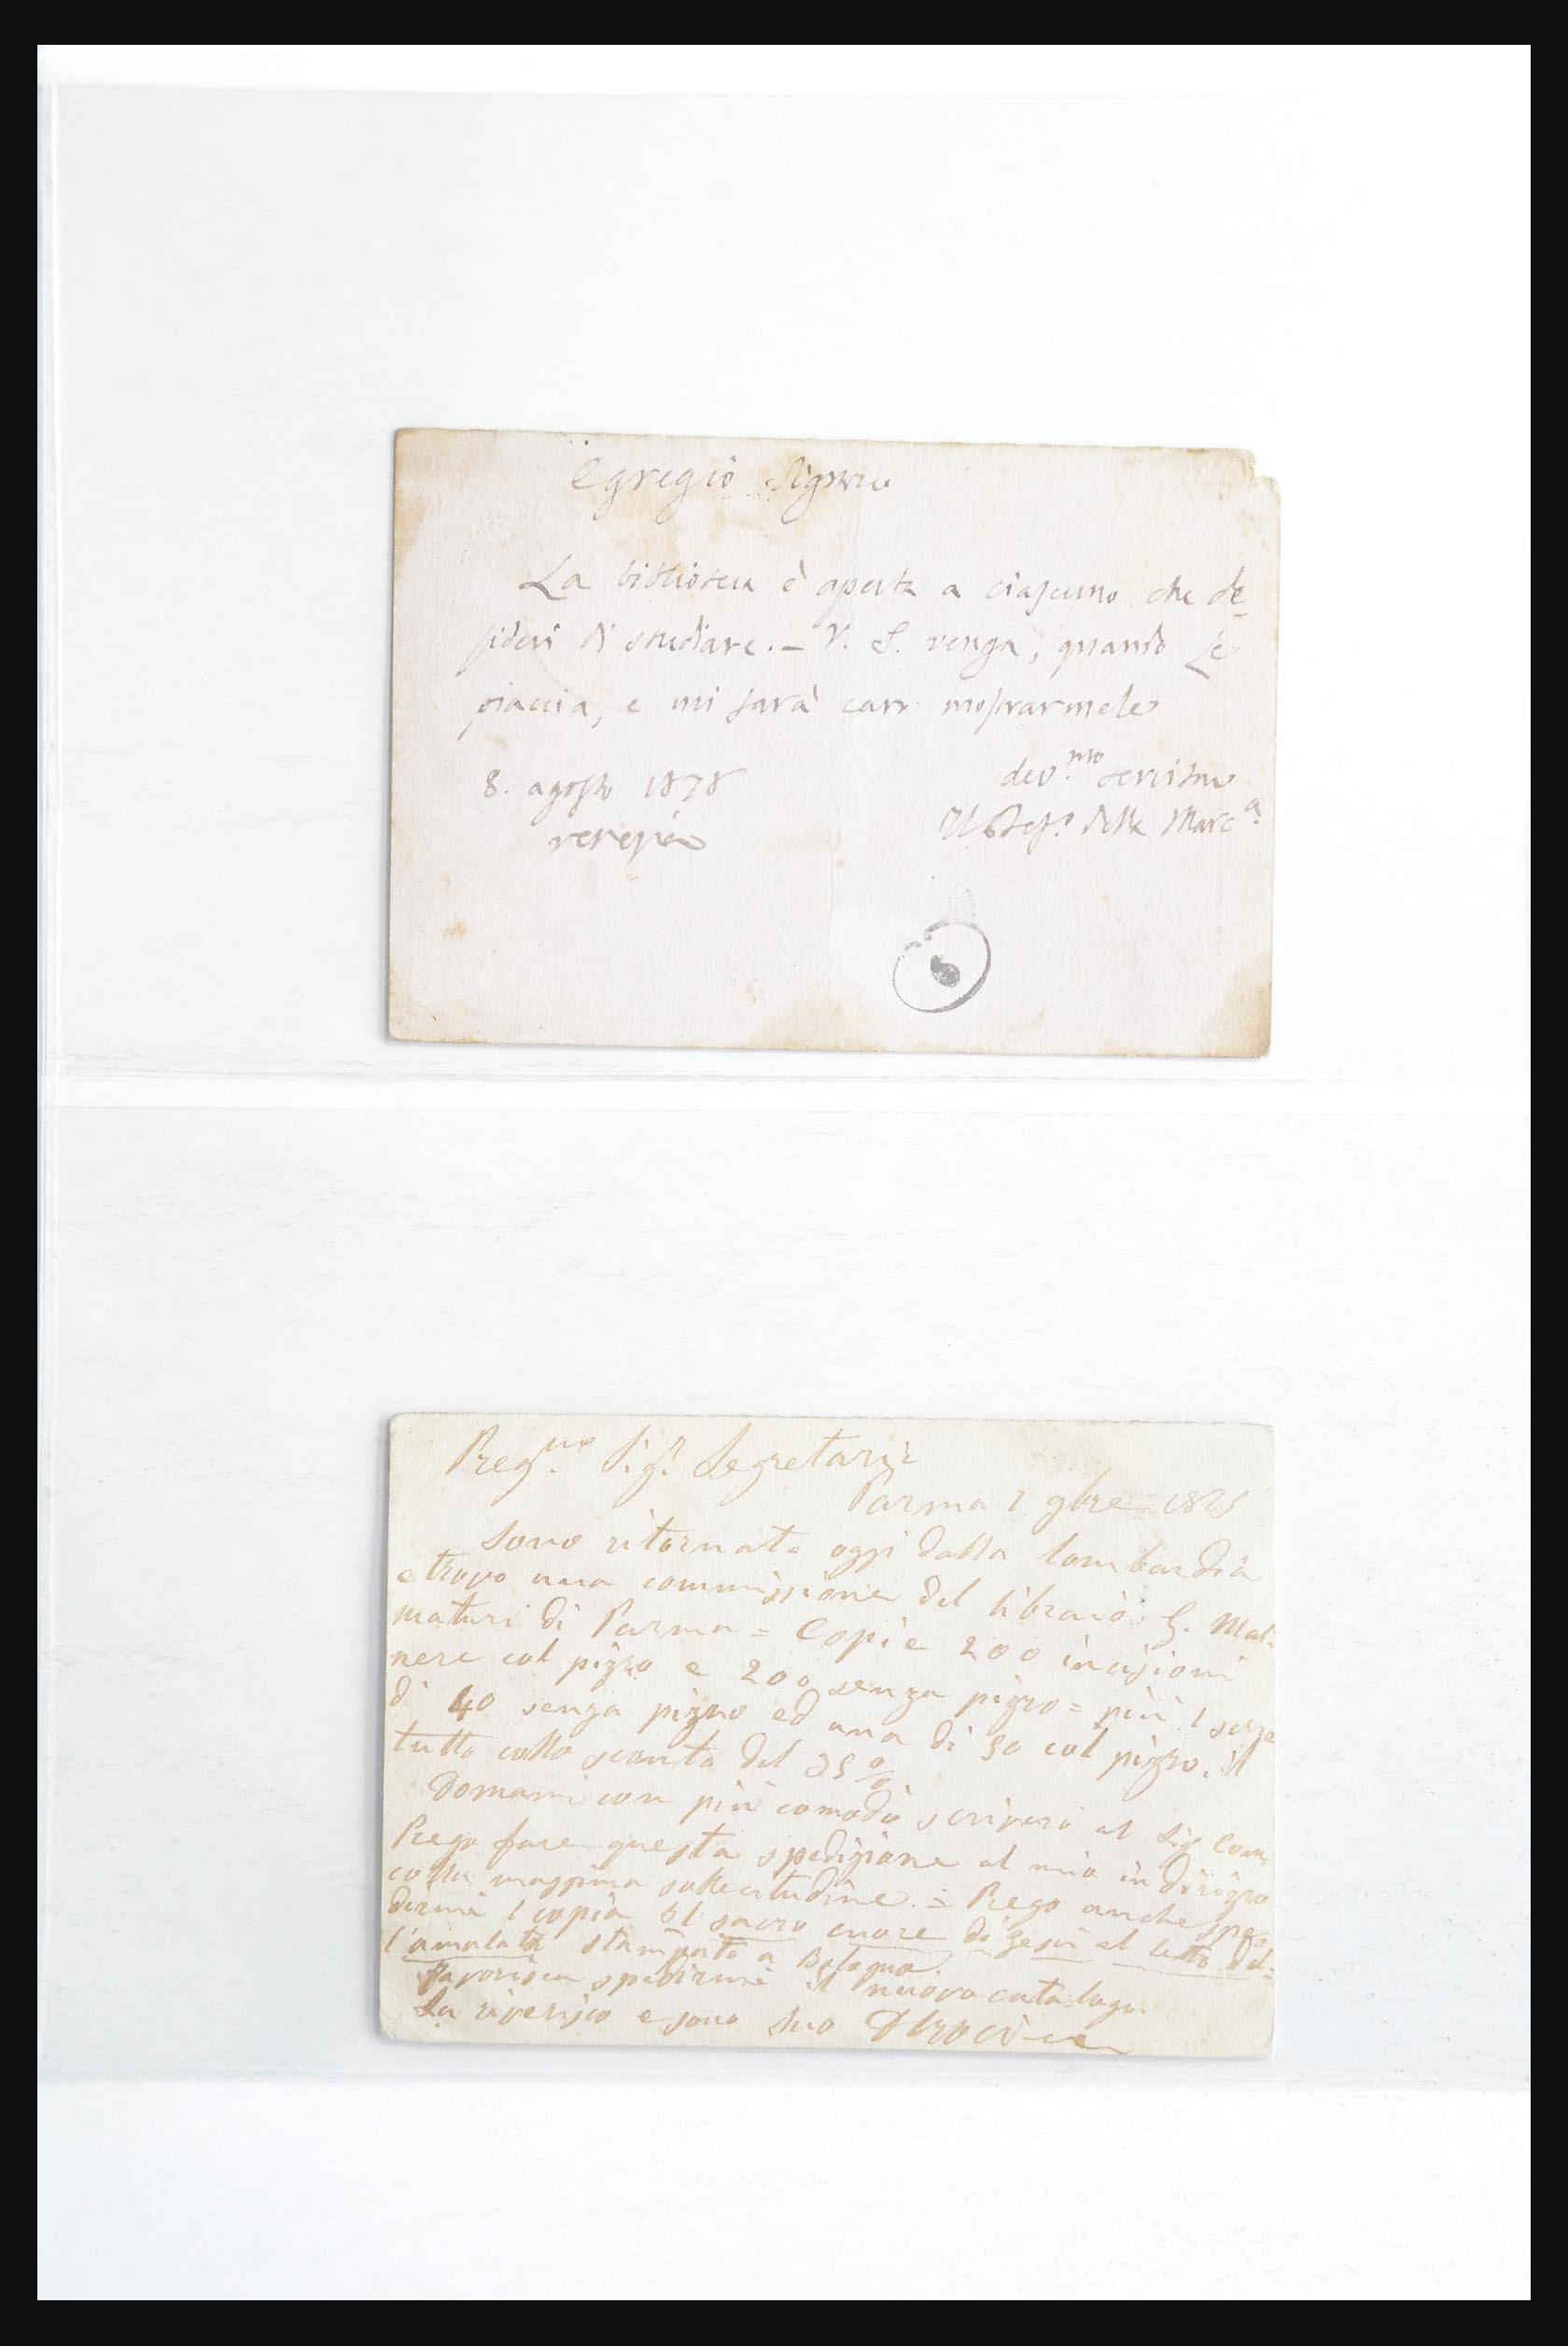 Egregio Signore
La biblioteca è aperta a ciascuno che de-
sideri di studiare. – V. S. venga, quando Le
piaccia, e mi sarà caro mostrarmele
dev.mo servitore
8. agosto 1878
Il della Marc.a
Venezia
Preg.mo Sig. Segretario
Parma 9bre
Sono ritornato oggi dalla Lombardia
e trovo una commissione del libraio G. Mal-
maturi di Parma = Copie 200 incisioni
nere col pizzo e 200 senza pizzo = più 1 serie
di 40 senza pizzo ed una di 50 col pizzo. Il
tutto collo sconto del 35 %
Domani con più comodo scriverò al Sig. Com.
Prego fare questa spedizione al mio indirizzo
colla massima sollecitudine. = Prego anche spe-
dirmi 1 copia Il sacro cuore di Gesù al letto del-
l'amalato stampato a Bologna.
Favorisca spedirmi il nuovo catalogo.
La riverisco e sono suo